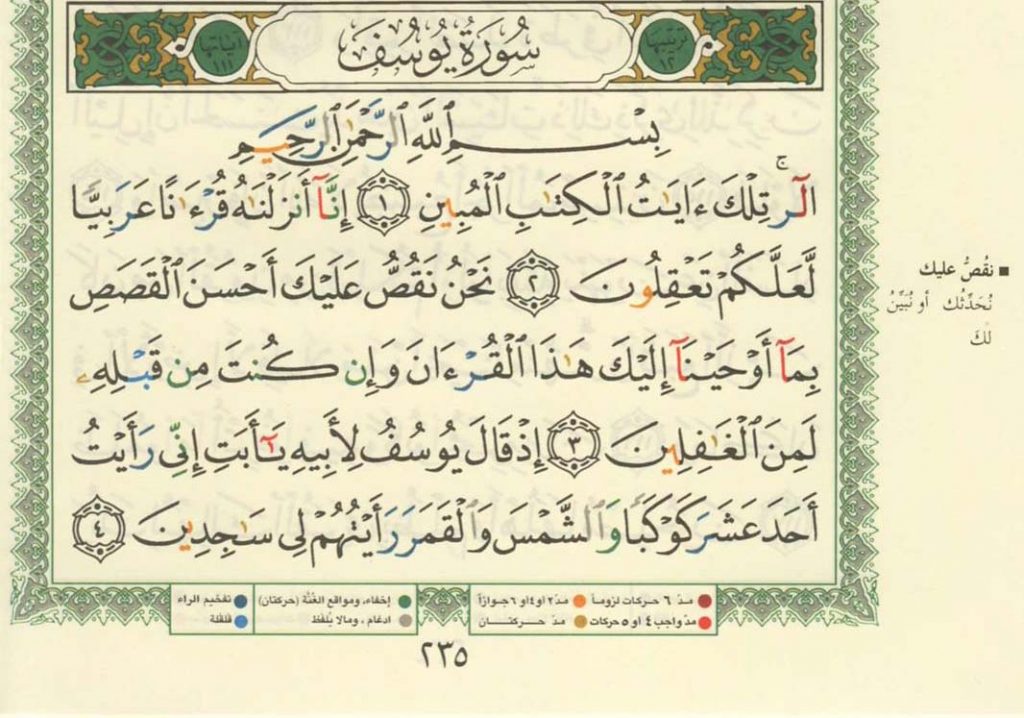 ترتيبها ١٢ سُورَةُ يُوسُفَ آياتها ١١١
بِسْمِ ٱللَّهِ ٱلرَّحْمَٰنِ ٱلرَّحِيمِ
الٓر ۚ تِلْكَ ءَايَٰتُ ٱلْكِتَٰبِ ٱلْمُبِينِ ١ إِنَّآ أَنزَلْنَٰهُ قُرْءَٰنًا عَرَبِيًّا
لَّعَلَّكُمْ تَعْقِلُونَ ٢ نَحْنُ نَقُصُّ عَلَيْكَ أَحْسَنَ ٱلْقَصَصِ
بِمَآ أَوْحَيْنَآ إِلَيْكَ هَٰذَا ٱلْقُرْءَانَ وَإِن كُنتَ مِن قَبْلِهِۦ
لَمِنَ ٱلْغَٰفِلِينَ ٣ إِذْ قَالَ يُوسُفُ لِأَبِيهِ يَٰٓأَبَتِ إِنِّى رَأَيْتُ
أَحَدَ عَشَرَ كَوْكَبًا وَٱلشَّمْسَ وَٱلْقَمَرَ رَأَيْتُهُمْ لِى سَٰجِدِينَ ٤
■ نقُصُّ عليك
نُحَدِّثُك أو نُبَيِّنُ
لَكَ
● مدّ ٦ حركات لزوماً ● مدّ ٢ او ٤ او ٦ جوازاً ● إخفاء، ومواقع الغُنَّة (حركتان) ● تفخيم الراء
● مدّ واجب ٤ أو ٥ حركات ● مدّ حركتان ● ادغام، ومالا يُلفَظ ● قلقلة
٢٣٥